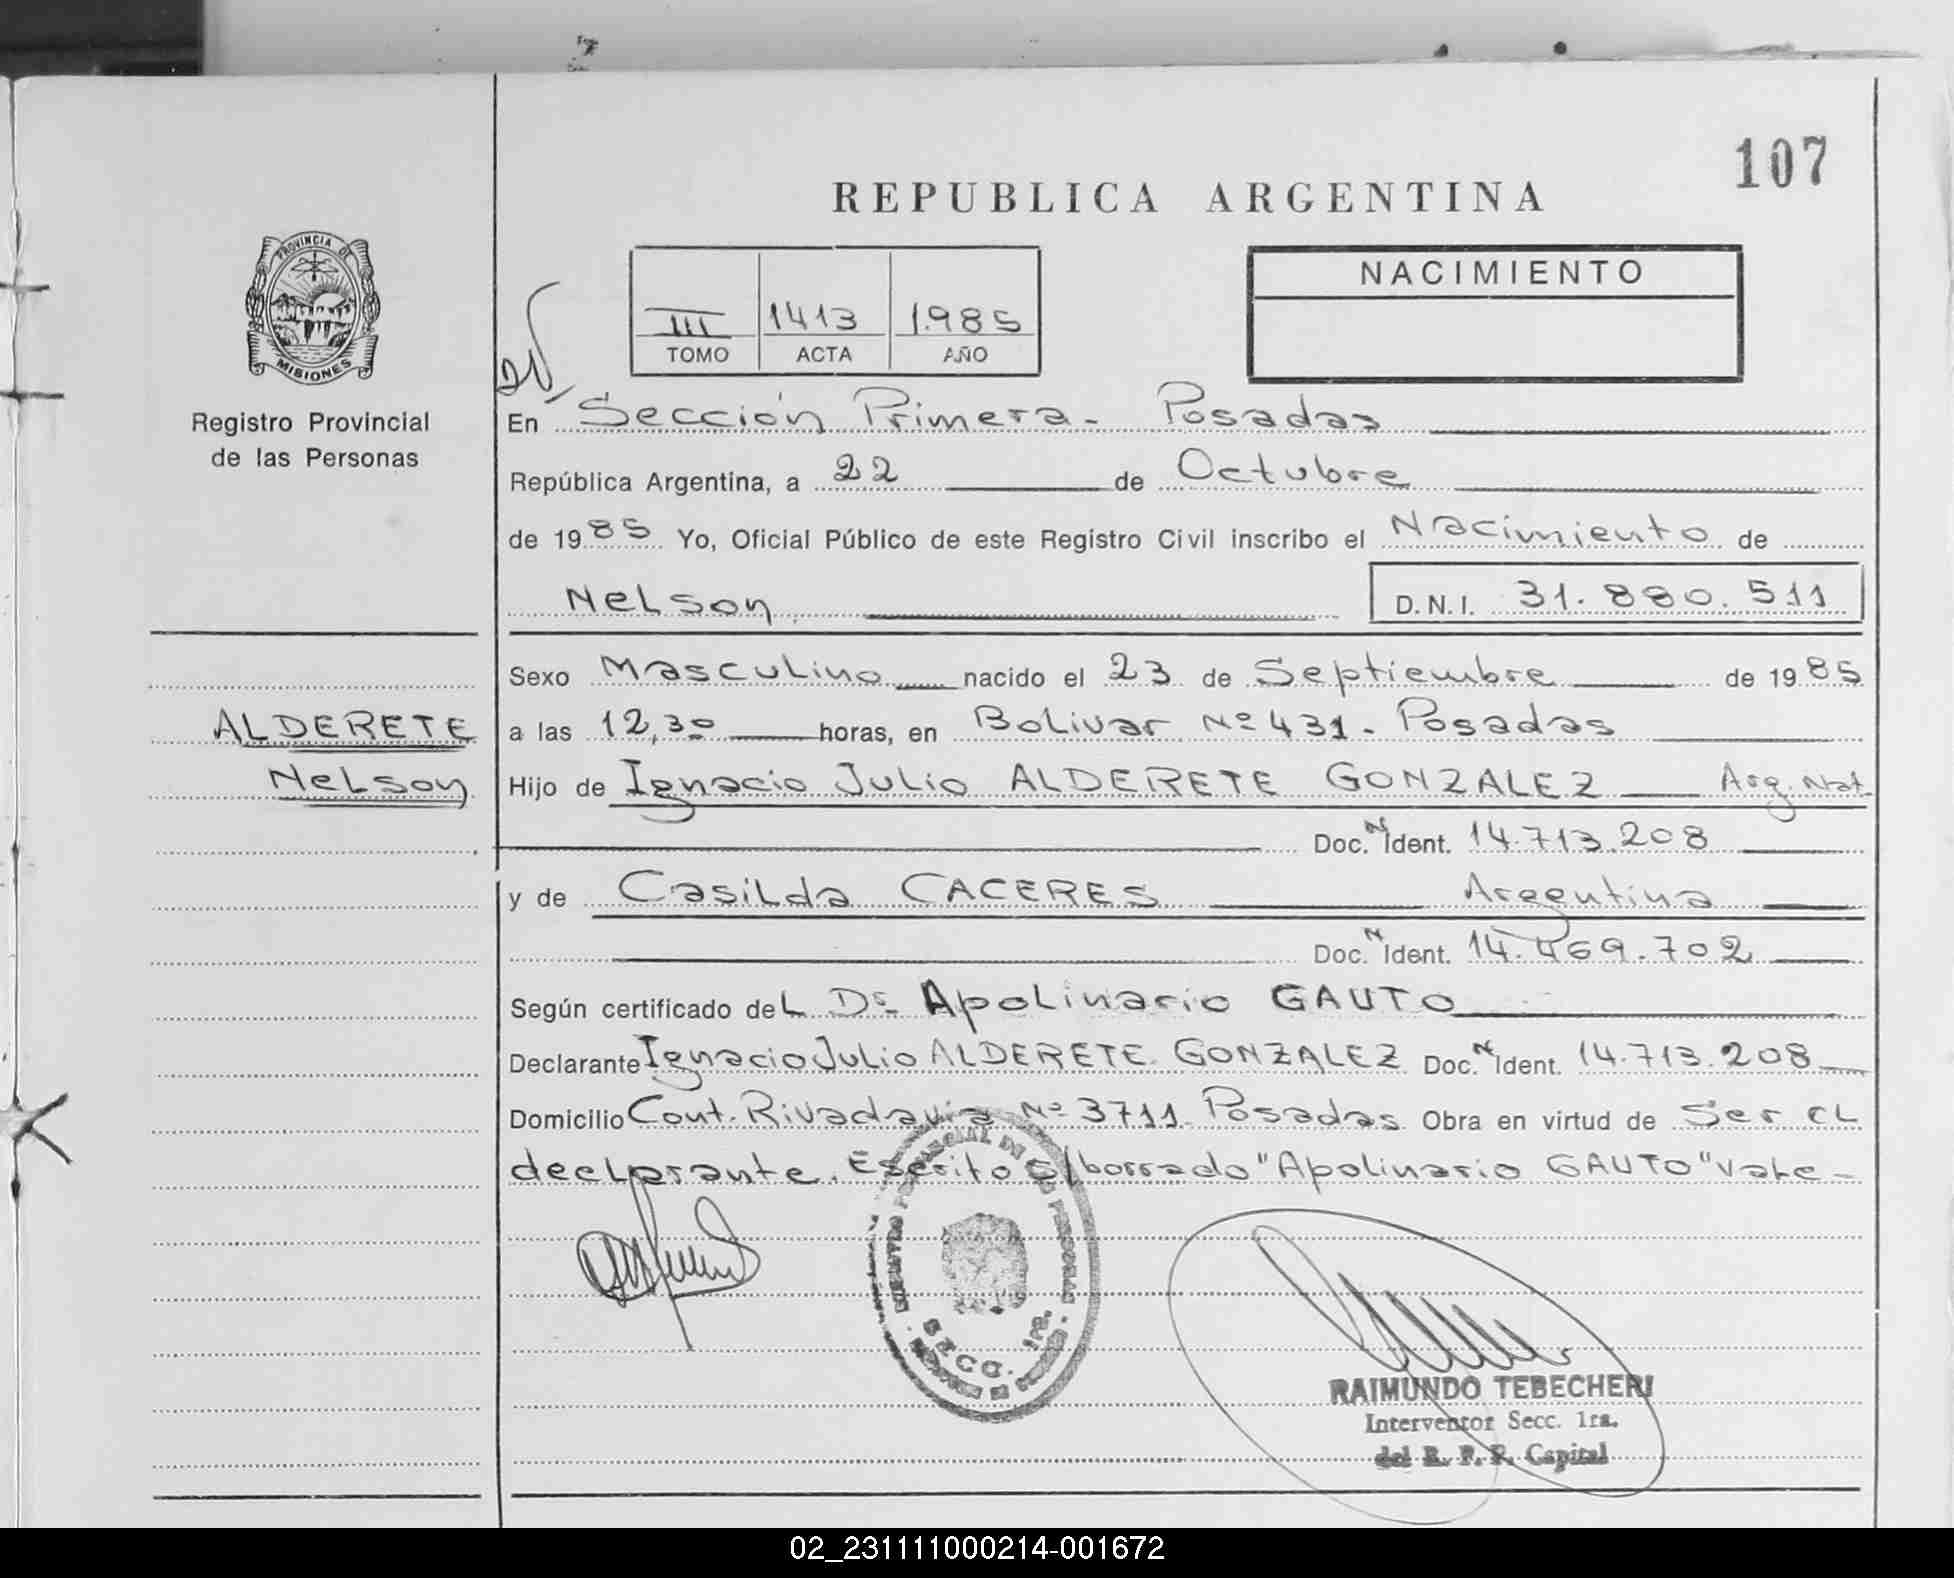 107
REPUBLICA ARGENTINA
PROVINCIA DE
MISIONES
Registro Provincial
de las Personas
III 1413 1.985
TOMO ACTA AÑO
NACIMIENTO
En Sección Primera - Posadas
República Argentina, a 22 de Octubre
de 1985 Yo, Oficial Público de este Registro Civil inscribo el Nacimiento de
Nelson D.N.I. 31.880.511
Sexo Masculino nacido el 23 de Septiembre de 1985
ALDERETE
a las 12,30 horas, en Bolivar Nº 431 - Posadas
Nelson
Hijo de Ignacio Julio ALDERETE GONZALEZ Arg. Nat.
Doc. N Ident. 14.713.208
y de Casilda CACERES Argentina
Doc. N Ident. 14.469.702
Según certificado del Dr. Apolinario GAUTO
Declarante Ignacio Julio ALDERETE GONZALEZ Doc. N Ident. 14.713.208
Domicilio Cont. Rivadavia Nº 3711 - Posadas Obra en virtud de Ser el
declarante. Escrito s/borrado "Apolinario GAUTO" vale -
SECC. 1ra.
RAIMUNDO TEBECHERI
Interventor Secc. 1ra.
del R. P. P. Capital
02_231111000214-001672